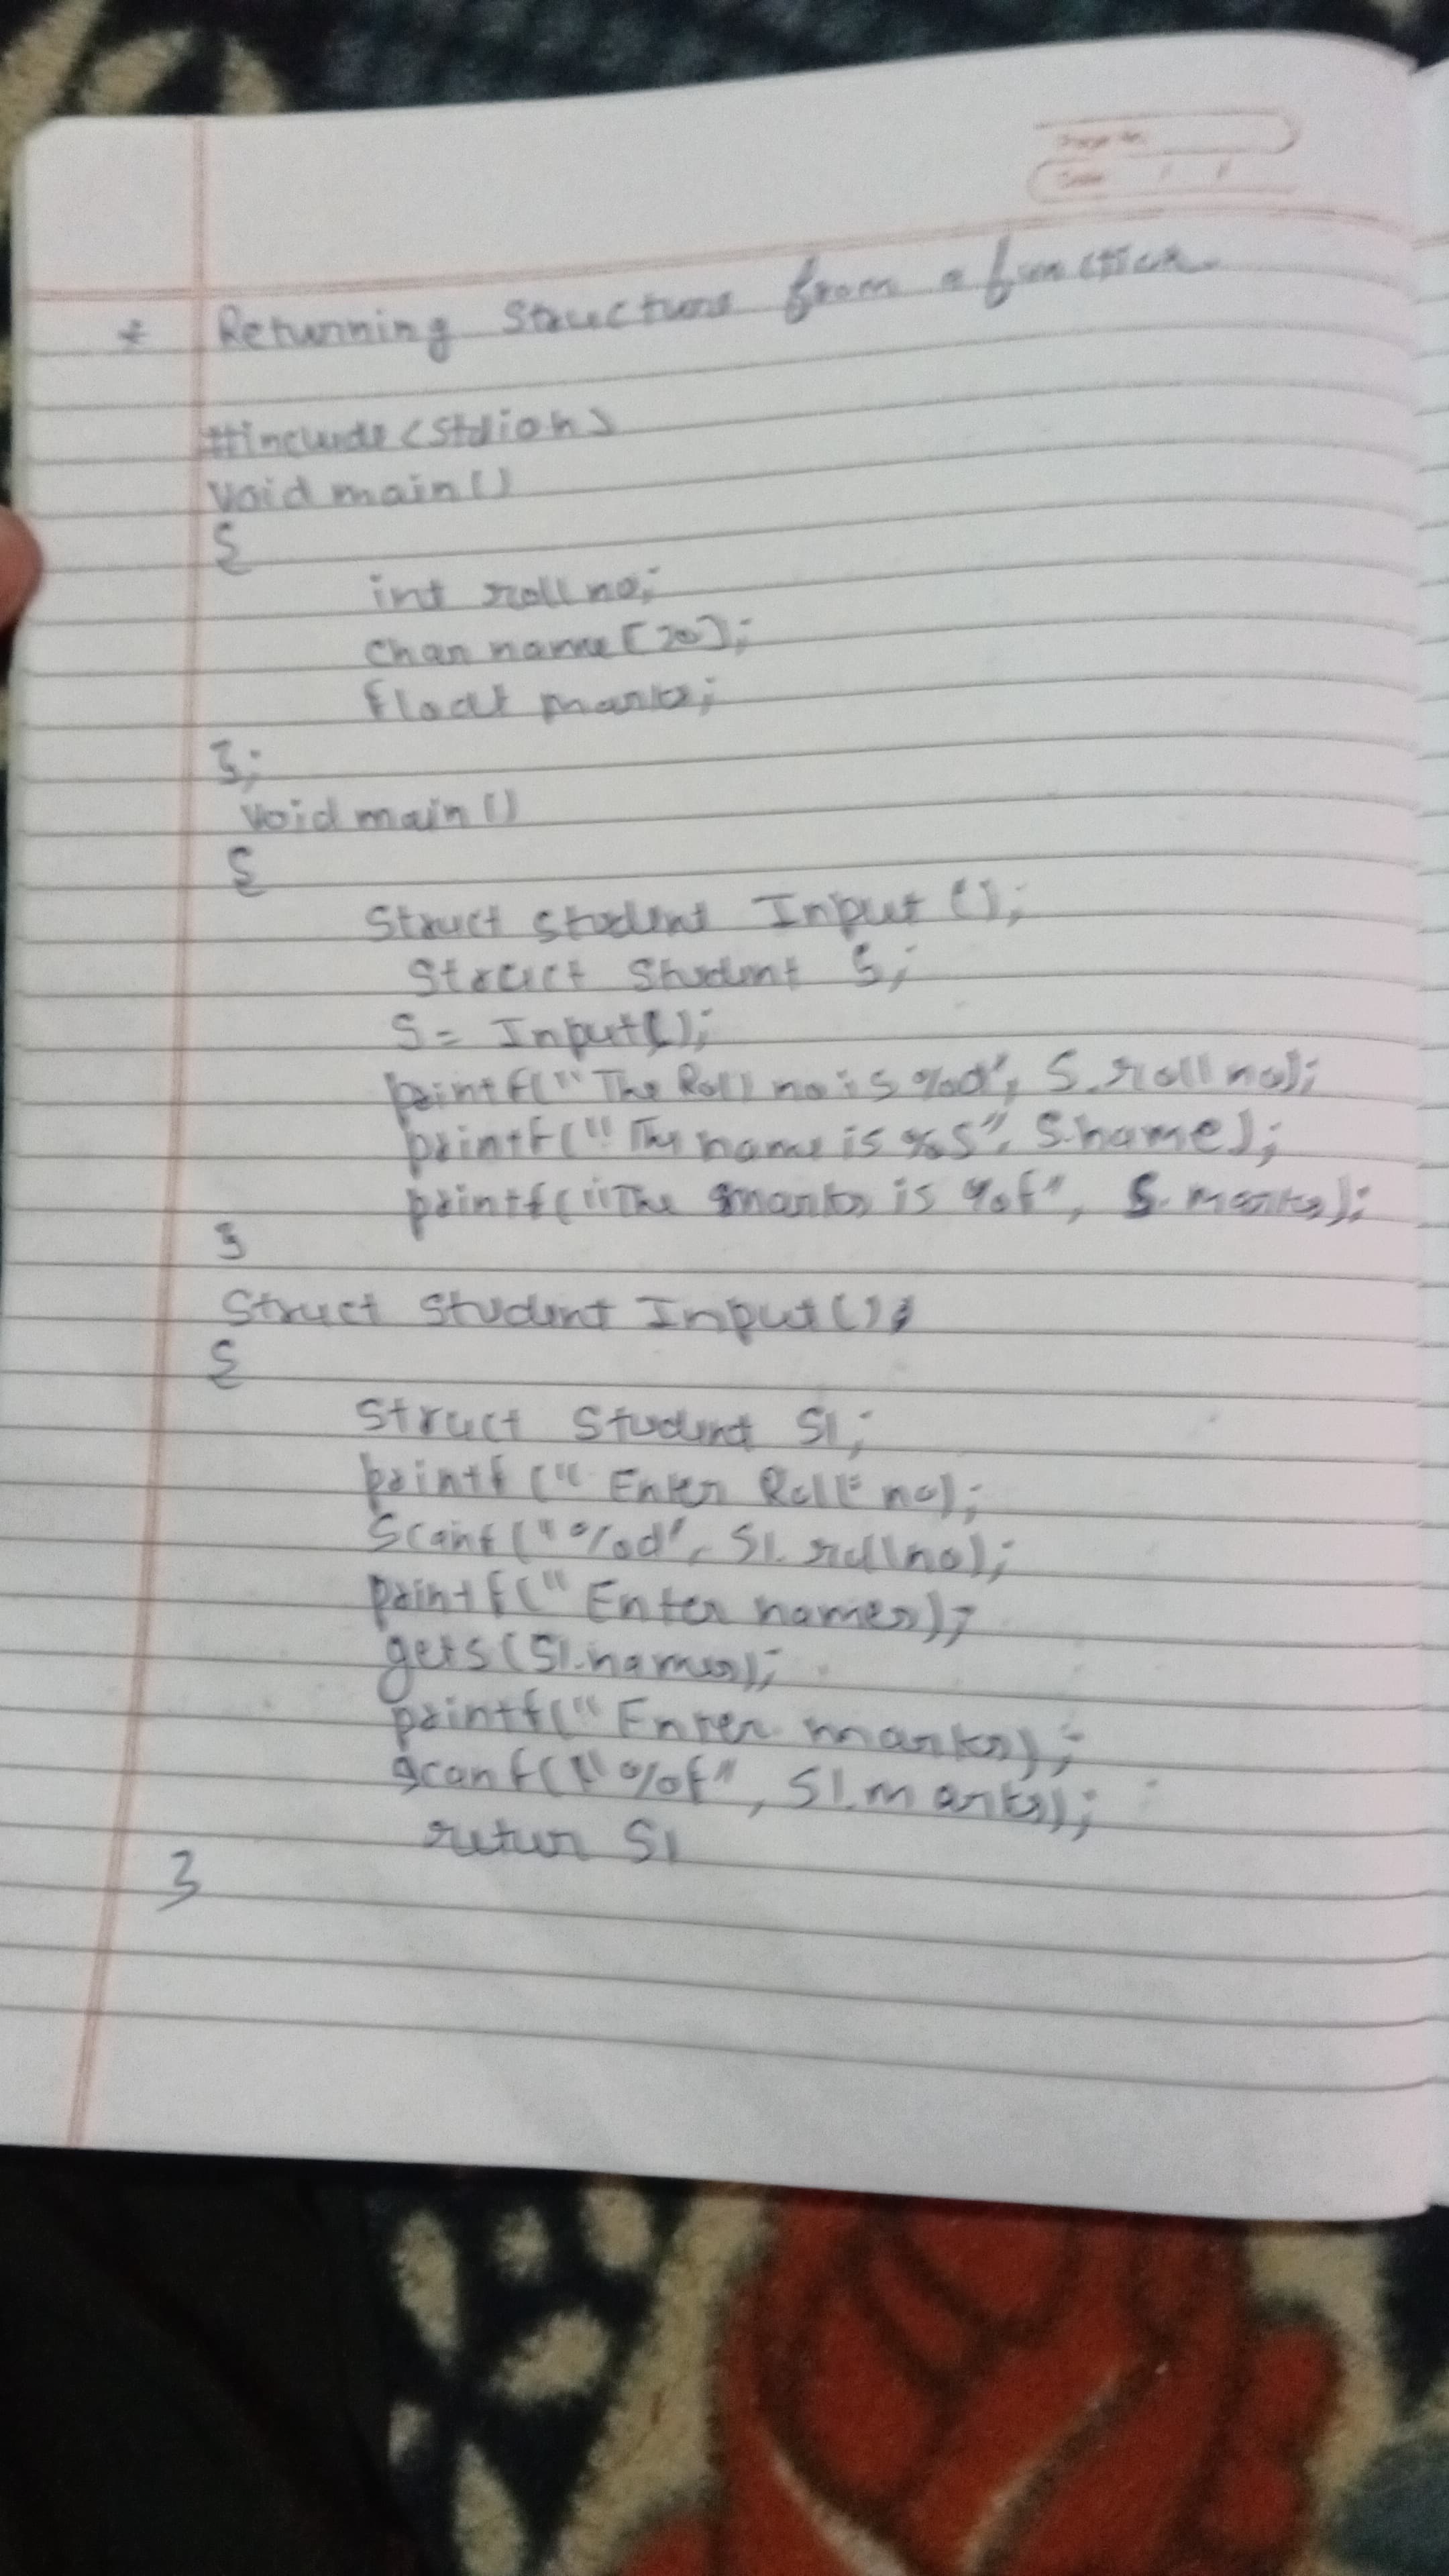 Page No.
Date / /
* Returning Structure from a function.
#include<stdioh>
Void main()
{
int roll no;
Char name[20];
float marks;
};
Void main()
{
Struct student Input();
Struct Student S;
S= Input();
printf("The Roll no is %d", S.roll no);
printf("The name is %s", S.name);
printf("The marks is %f", S.marks);
}
Struct Student Input();
{
Struct Student S1;
printf("Enter Roll no);
Scanf("%d", S1.rollno);
printf("Enter names);
gets(S1.names);
printf("Enter marks);
scanf("%f", S1.marks);
retur S1
}